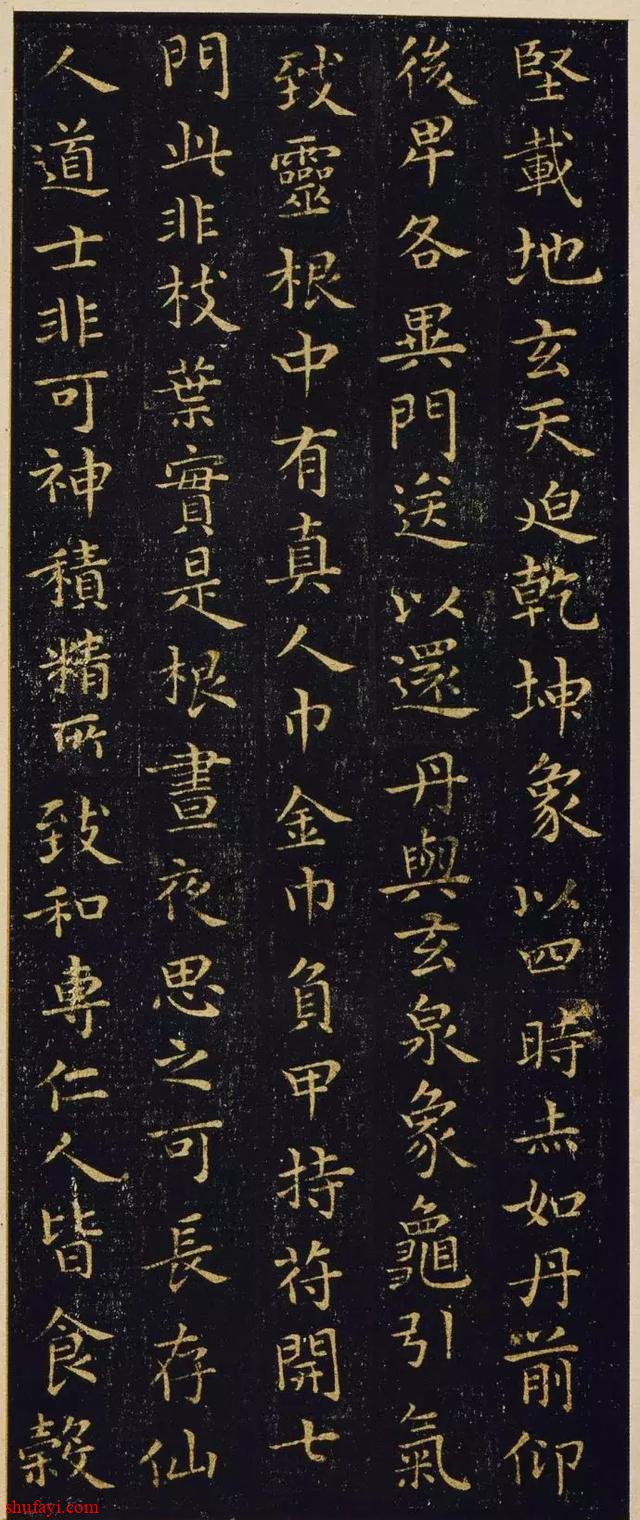 堅載地玄天迫乾坤象以四時赤如丹前仰
後卑各異門送以還丹與玄泉象龜引氣
致靈根中有真人巾金巾負甲持苻開七
門此非枝葉實是根晝夜思之可長存仙
人道士非可神積精所致和專仁人皆食榖
shufayi.com